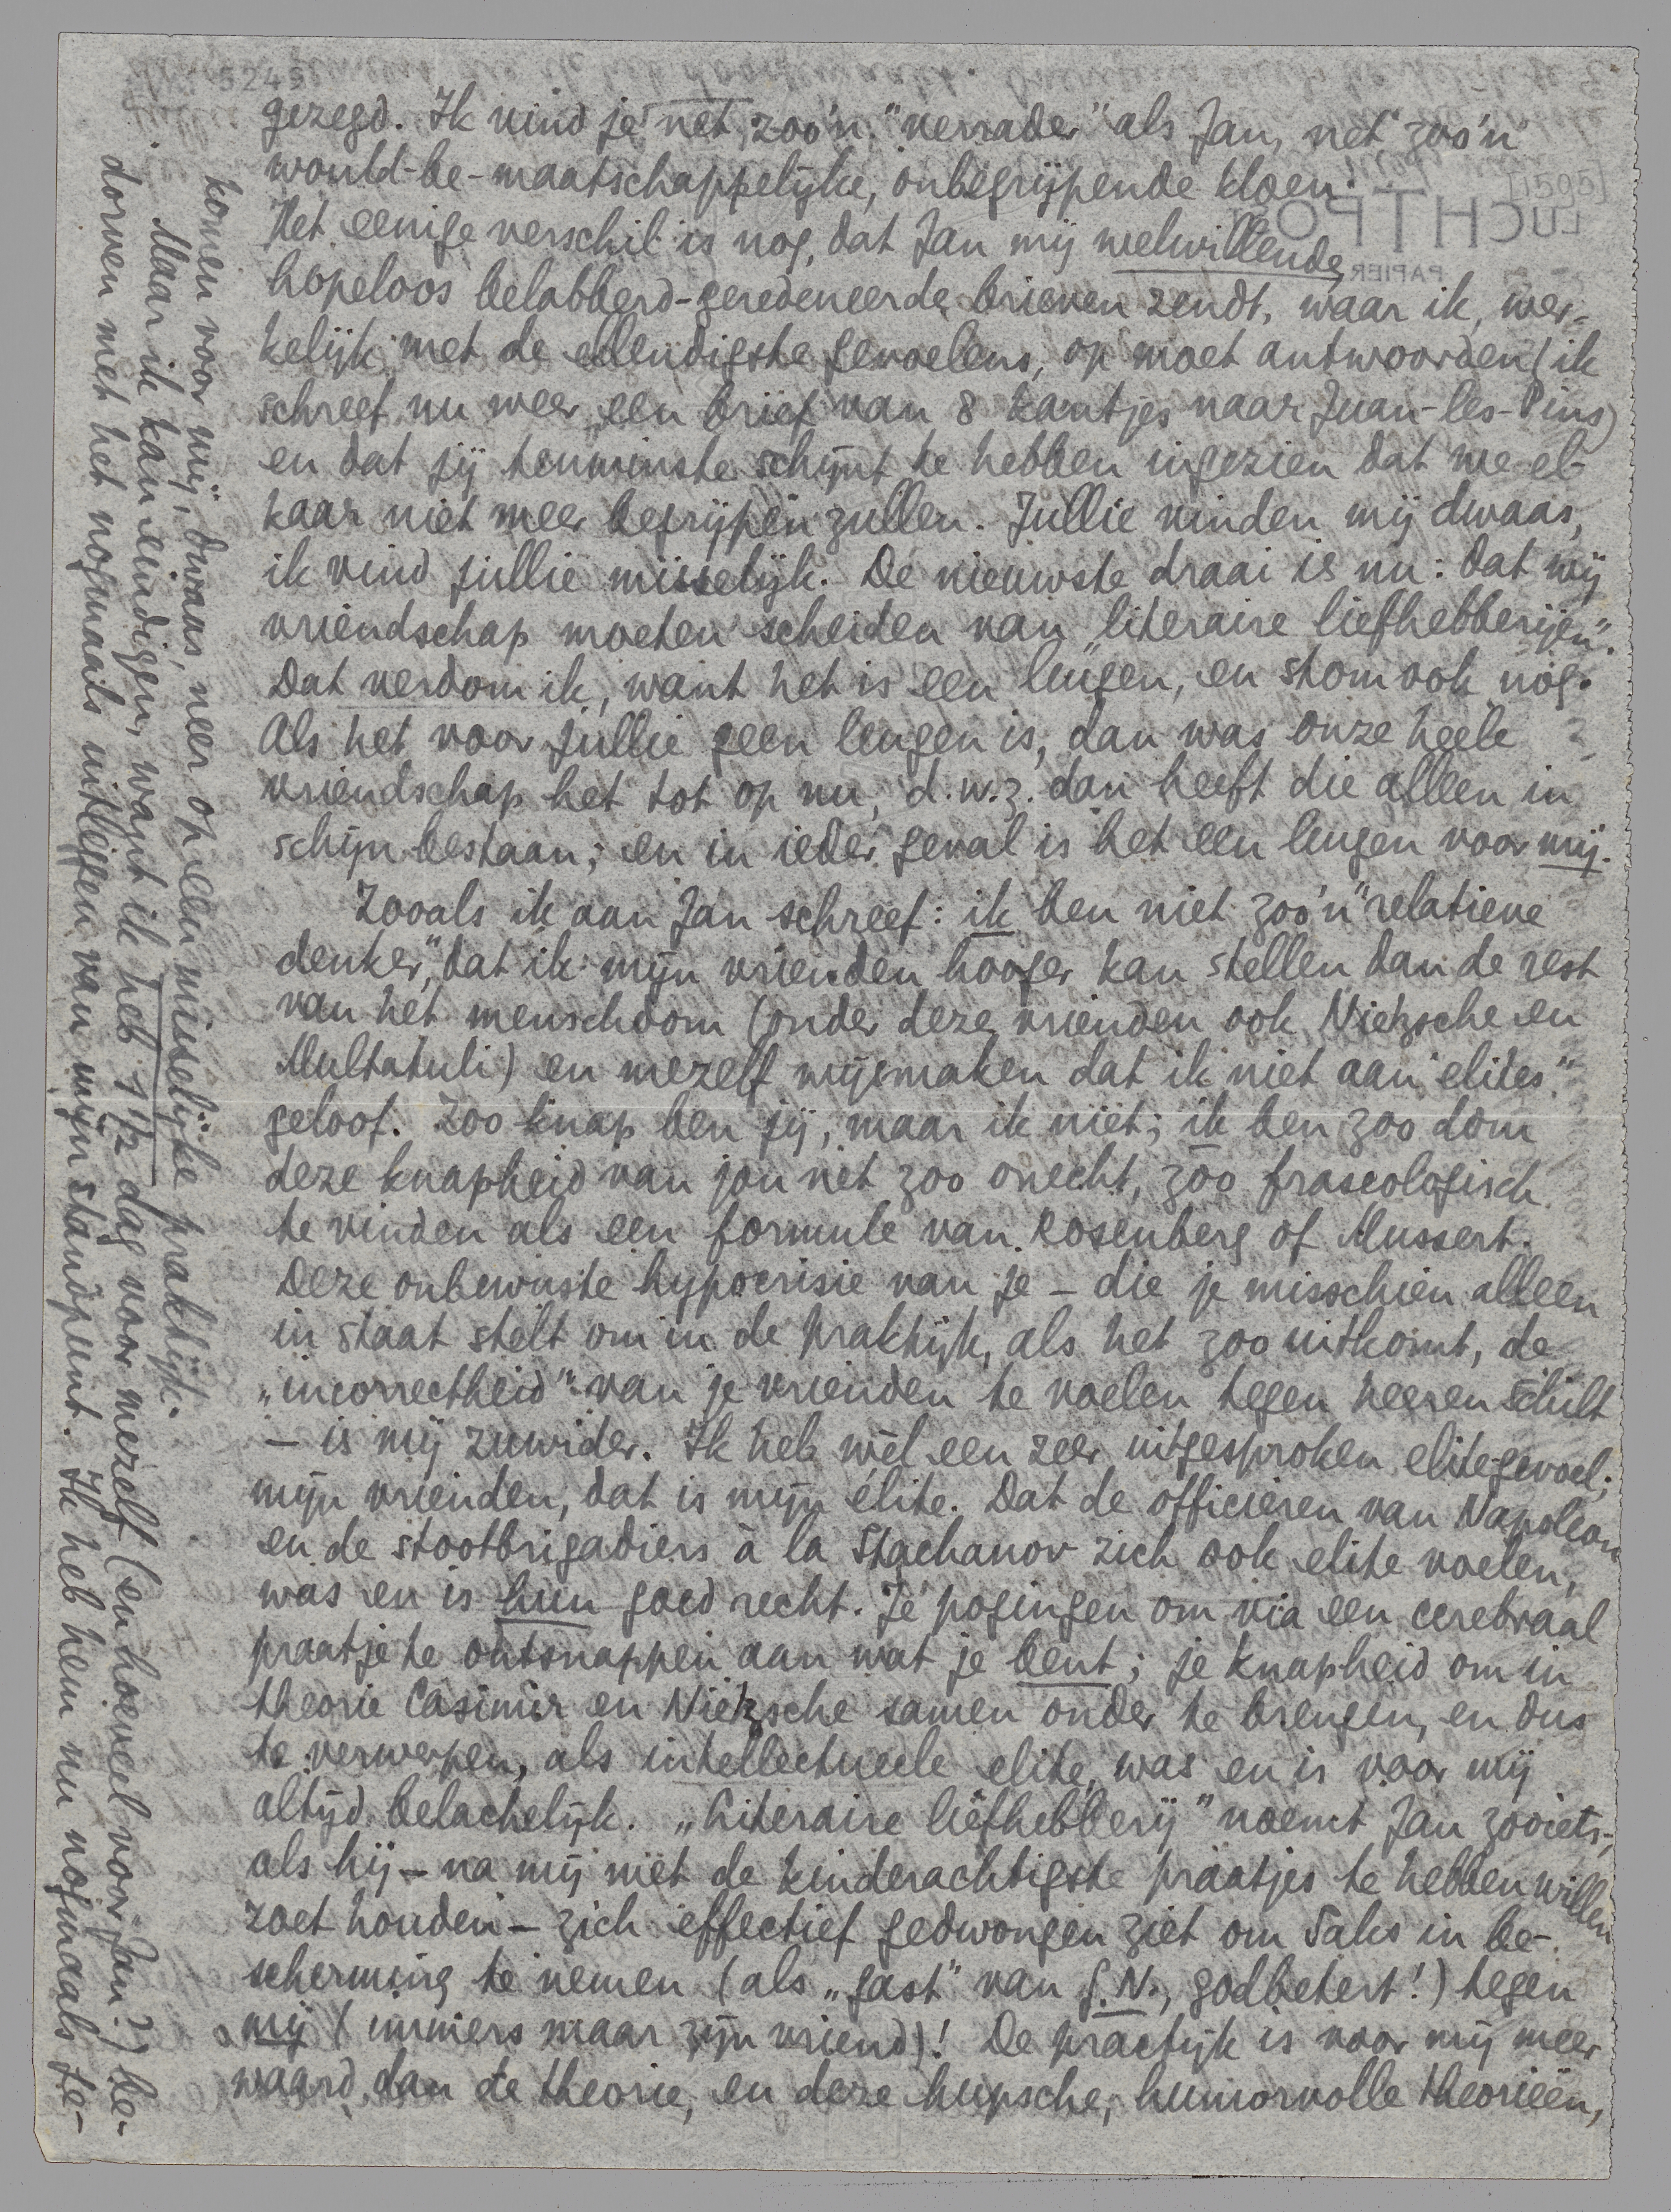 gezegd. Ik vind je net zoo'n "verrader" als Jan, net zoo'n
would-be-maatschappelijke, onbegrijpende kloen.
Het eenige verschil is nog, dat Jan mij welwillende,
hopeloos belabberd-geredeneerde brieven zendt, waar ik, wer-
kelijk met de ellendigste gevoelens, op moet antwoorden (ik
schreef nu weer een brief van 8 kantjes naar Juan-les-Pins)
en dat jij tenminste schijnt te hebben ingezien dat we el-
kaar niet meer begrijpen zullen. Jullie vinden mij dwaas,
ik vind jullie misselijk. De nieuwste draai is nu: dat wij
vriendschap moeten scheiden van „literaire liefhebberijen".
Dat verdom ik, want het is een leugen, en stom ook nog.
Als het voor jullie geen leugen is, dan was onze heele
vriendschap het tot op nu, d.w.z. dan heeft die alleen in
schijn bestaan; en in ieder geval is het een leugen voor mij.
Zooals ik aan Jan schreef: ik ben niet zoo'n "relatieve
denker", dat ik mijn vrienden hooger kan stellen dan de rest
van het menschdom (onder deze vrienden ook Nietzsche en
Multatuli) en mezelf wijsmaken dat ik niet aan "elites"
geloof. Zoo knap ben jij, maar ik niet; ik ben zoo dom
deze knapheid van jou net zoo onecht, zoo fraseologisch
te vinden als een formule van Rosenberg of Mussert.
Deze onbewuste hypocrisie van je — die je misschien alleen
in staat stelt om in de praktijk, als het zoo uitkomt, de
„incorrectheid" van je vrienden te voelen tegen heeren Schilt
— is mij zuwider. Ik heb wèl een zeer uitgesproken elite-gevoel;
mijn vrienden, dat is mijn élite. Dat de officieren van Napoleon
en de stootbrigadiers à la Stachanov zich ook elite voelen,
was en is hun goed recht. Je pogingen om via een cerebraal
praatje te ontsnappen aan wat je bent; je knapheid om in
theorie Casimir en Nietzsche samen onder te brengen, en dus
te verwerpen, als intellectueele elite, was en is voor mij
altijd belachelijk. „Literaire liefhebberij" noemt Jan zooiets,
als hij — na mij met de kinderachtigste praatjes te hebben willen
zoet houden — zich effectief gedwongen ziet om Saks in be-
scherming te nemen (als „gast" van G.N., godbetert!) tegen
mij (immers maar zijn vriend)! De practijk is voor mij meer
waard dan de theorie, en deze hupsche, humorvolle theorieën,
komen voor mij, dwaas, neer op een misselijke praktijk.
Maar ik kan eindigen, want ik heb 1 1/2 dag voor mezelf (en hoeveel voor Jan?) be-
dorven met het nogmaals uitleggen van mijn standpunt. Ik heb hem nu nogmaals ge-
[1595]
LUCHTPO
PAPIER